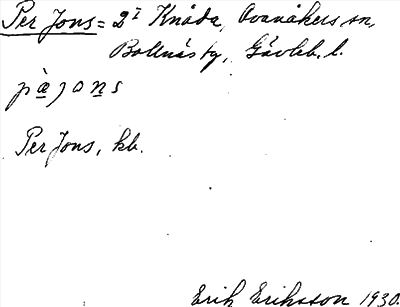 Per Jons = 2 I Knåda, Ovanåkers sn,
Bollnäs tg, Gävleb. l.
pàjons
Per Jons, kb.
Erik Eriksson 1930.